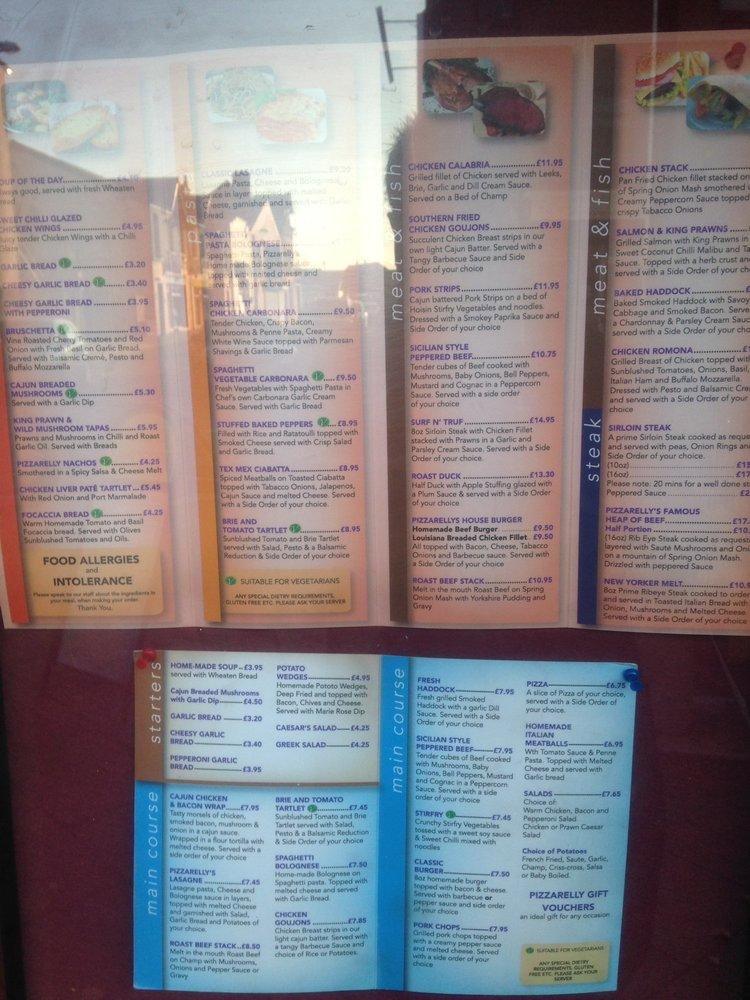 OUP OF THE DAY
ways good, served with fresh Wheaten
Bread
WEET CHILLI GLAZED
CHICKEN WINGS £4.95
uicy tender Chicken Wings with a Chilli
Glaze
GARLIC BREAD £3.20
CHEESY GARLIC BREAD £3.40
CHEESY GARLIC BREAD £3.95
WITH PEPPERONI
BRUSCHETTA £5.10
Vine Roasted Cherry Tomatoes and Red
Onion with Fresh Basil on Garlic Bread.
Served with Balsamic Cremé, Pesto and
Buffalo Mozzarella
CAJUN BREADED
MUSHROOMS £5.30
Served with a Garlic Dip
KING PRAWN &
WILD MUSHROOM TAPAS £5.95
Prawns and Mushrooms in Chilli and Roast
Garlic Oil. Served with Breads
PIZZARELLY NACHOS £4.25
Smothered in a Spicy Salsa & Cheese Melt
CHICKEN LIVER PATÉ TARTLET £5.45
With Red Onion and Port Marmalade
FOCACCIA BREAD £4.25
Warm Homemade Tomato and Basil
Focaccia bread. Served with Olives
Sunblushed Tomatoes and Oils.
FOOD ALLERGIES
and
INTOLERANCE
Please speak to our staff about the ingredients in
your meal, when making your order.
Thank You.
past
CLASSIC LASAGNE £9.20
Pasta, Cheese and Bolognese
sauce in layers topped with melted
Cheese, garnished and served with Garlic
Bread
SPAGHETTI
PASTA BOLOGNESE
Spaghetti Pasta, Pizzarelly's
Home made Bolognese sauce
topped with melted cheese and
served with garlic bread
SPAGHETTI
CHICKEN CARBONARA £9.50
Tender Chicken, Crispy Bacon,
Mushrooms & Penne Pasta, Creamy
White Wine Sauce topped with Parmesan
Shavings & Garlic Bread
SPAGHETTI
VEGETABLE CARBONARA £9.50
Fresh Vegetables with Spaghetti Pasta in
Chef's own Carbonara Garlic Cream
Sauce. Served with Garlic Bread
STUFFED BAKED PEPPERS £8.95
Filled with Rice and Ratatoulli topped with
Smoked Cheese served with Crisp Salad
and Garlic Bread.
TEX MEX CIABATTA £8.95
Spiced Meatballs on Toasted Ciabatta
topped with Tabacco Onions, Jalapenos,
Cajun Sauce and melted Cheese. Served
with a Side Order of your choice
BRIE AND
TOMATO TARTLET £8.95
Sunblushed Tomato and Brie Tartlet
served with Salad, Pesto & a Balsamic
Reduction & Side Order of your choice
SUITABLE FOR VEGETARIANS
ANY SPECIAL DIETRY REQUIREMENTS,
GLUTEN FREE ETC. PLEASE ASK YOUR SERVER
meat & fish
CHICKEN CALABRIA £11.95
Grilled fillet of Chicken served with Leeks,
Brie, Garlic and Dill Cream Sauce.
Served on a Bed of Champ
SOUTHERN FRIED
CHICKEN GOUJONS £9.95
Succulent Chicken Breast strips in our
own light Cajun Batter. Served with a
Tangy Barbecue Sauce and Side
Order of your choice
PORK STRIPS £11.95
Cajun battered Pork Strips on a bed of
Hoisin Stirfry Vegetables and noodles.
Dressed with a Smokey Paprika Sauce and
Side Order of your choice
SICILIAN STYLE
PEPPERED BEEF £10.75
Tender cubes of Beef cooked with
Mushrooms, Baby Onions, Bell Peppers,
Mustard and Cognac in a Peppercorn
Sauce. Served with a side order
of your choice
SURF N' TRUF £14.95
8oz Sirloin Steak with Chicken Fillet
stacked with Prawns in a Garlic and
Parsley Cream Sauce. Served with a Side
Order of your choice.
ROAST DUCK £13.30
Half Duck with Apple Stuffing glazed with
a Plum Sauce & served with a Side Order
of your choice.
PIZZARELLYS HOUSE BURGER
Homemade Beef Burger £9.50
Louisiana Breaded Chicken Fillet £9.50
All topped with Bacon, Cheese, Tabacco
Onions and Barbecue sauce. Served with
a Side Order of your choice
ROAST BEEF STACK £10.95
Melt in the mouth Roast Beef on Spring
Onion Mash with Yorkshire Pudding and
Gravy
meat & fish
CHICKEN STACK
Pan Fried Chicken fillet stacked on
of Spring Onion Mash smothered
Creamy Peppercorn Sauce topped
crispy Tabacco Onions
SALMON & KING PRAWNS
Grilled Salmon with King Prawns
Sweet Coconut Chilli Malibu and
Sauce. Topped with a herb crust an
served with a Side Order of your
BAKED HADDOCK
Baked Smoked Haddock with Savoy
Cabbage and Smoked Bacon. Served
a Chardonnay & Parsley Cream Sauc
Side Order of your choice
CHICKEN ROMONA
Grilled Breast of Chicken topped
Sunblushed Tomatoes, Onions, Basil,
Italian Ham and Buffalo Mozzarella
Dressed with Pesto and Balsamic Cre
and served with a Side Order of your
choice
steak
SIRLOIN STEAK
A prime Sirloin Steak cooked as reques
and served with peas, Onion Rings an
Side Order of your choice.
(10oz)
(16oz)
Please note: 20 mins for a well done st
Peppered Sauce
PIZZARELLY'S FAMOUS
HEAP OF BEEF
Half Portion
(16oz) Rib Eye Steak cooked as reques
layered with Sauté Mushrooms and Oni
on a mountain of Spring Onion Mash.
Drizzled with peppered Sauce
NEW YORKER MELT
8oz Prime Ribeye Steak cooked to order
and served in Toasted Italian Bread with
Onion, Mushrooms and Melted Cheese
Served with a Side Order of your choice.
starters
HOME-MADE SOUP £3.95
served with Wheaten Bread
Cajun Breaded Mushrooms
with Garlic Dip £4.50
GARLIC BREAD £3.20
CHEESY GARLIC
BREAD £3.40
PEPPERONI GARLIC
BREAD £3.95
POTATO
WEDGES £4.95
Homemade Pototo Wedges,
Deep Fried and topped with
Bacon, Chives and Cheese.
Served with Marie Rose Dip
CAESAR'S SALAD £4.25
GREEK SALAD £4.25
main course
CAJUN CHICKEN
& BACON WRAP £7.95
Tasty morsels of chicken,
smoked bacon, mushroom &
onion in a cajun sauce.
Wrapped in a flour tortilla with
melted cheese. Served with a
side order of your choice
PIZZARELLY'S
LASAGNE £7.45
Lasagne pasta, Cheese and
Bolognese sauce in layers,
topped with melted Cheese
and garnished with Salad,
Garlic Bread and Potatoes of
your choice.
ROAST BEEF STACK £8.50
Melt in the mouth Roast Beef
on Champ with Mushrooms,
Onions and Pepper Sauce or
Gravy
BRIE AND TOMATO
TARTLET £7.45
Sunblushed Tomato and Brie
Tartlet served with Salad,
Pesto & a Balsamic Reduction
& Side Order of your choice
SPAGHETTI
BOLOGNESE £7.50
Home-made Bolognese on
Spaghetti pasta. Topped with
melted cheese and served
with Garlic Bread.
CHICKEN
GOUJONS £7.85
Chicken Breast strips in our
light cajun batter. Served with
a tangy Barbecue Sauce and
choice of Rice or Potatoes.
main course
FRESH
HADDOCK £7.95
Fresh grilled Smoked
Haddock with a garlic Dill
Sauce. Served with a Side
Order of your choice.
SICILIAN STYLE
PEPPERED BEEF £7.95
Tender cubes of Beef cooked
with Mushrooms, Baby
Onions, Bell Peppers, Mustard
and Cognac in a Peppercorn
Sauce. Served with a side
order of your choice
STIRFRY £7.45
Crunchy Stirfry Vegetables
tossed with a sweet soy sauce
& Sweet Chilli mixed with
noodles
CLASSIC
BURGER £7.50
8oz homemade burger
topped with bacon & cheese.
Served with barbecue or
pepper sauce and side order
of your choice
PORK CHOPS £7.95
Grilled pork chops topped
with a creamy pepper sauce
and melted cheese. Served
with a side order of your
choice
PIZZA £6.75
A slice of Pizza of your choice,
served with a Side Order of
your choice.
HOMEMADE
ITALIAN
MEATBALLS £6.95
Wth Tomato Sauce & Penne
Pasta. Topped with Melted
Cheese and served with
Garlic bread
SALADS £7.65
Choice of:
Warm Chicken, Bacon and
Pepperoni Salad
Chicken or Prawn Caesar
Salad
Choice of Potatoes
French Fried, Saute, Garlic,
Champ, Criss-cross, Salsa
or Baby Boiled.
PIZZARELLY GIFT
VOUCHERS
an ideal gift for any occasion
SUITABLE FOR VEGETARIANS
ANY SPECIAL DIETRY
REQUIREMENTS, GLUTEN
FREE ETC. PLEASE ASK YOUR
SERVER